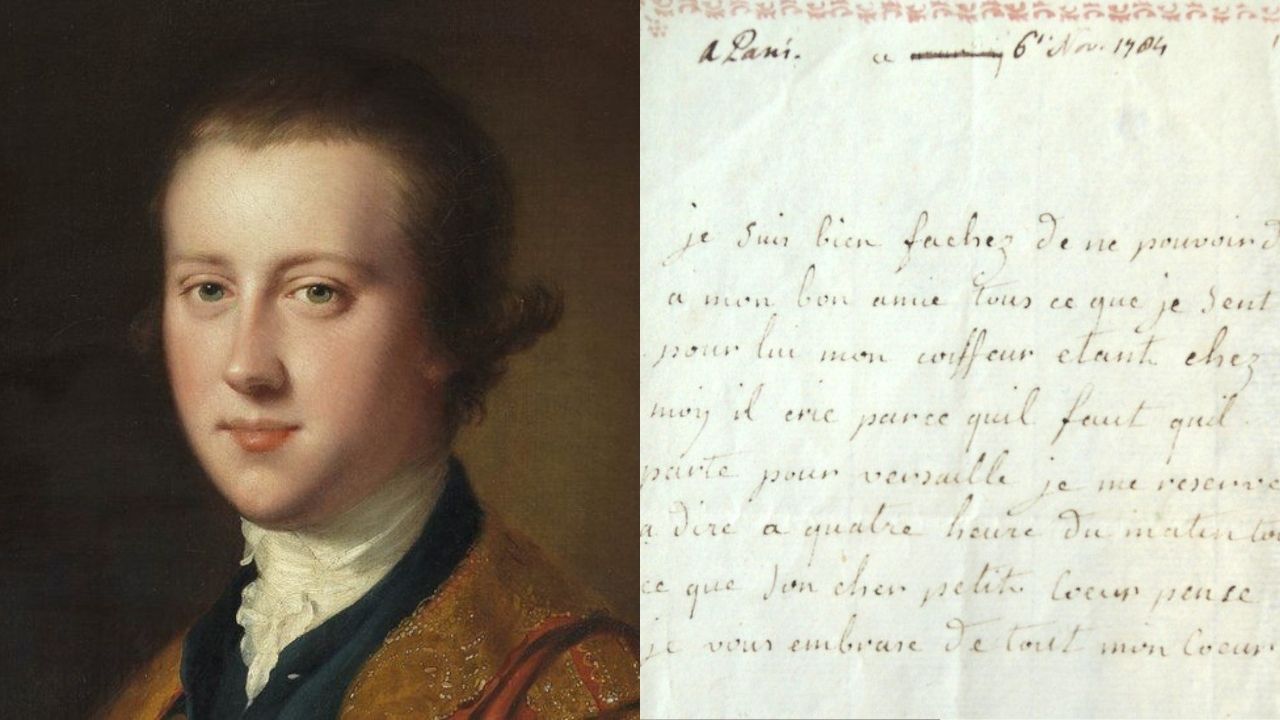 a Paris. ce 6e Nov. 1784
je suis bien fachez de ne pouvoir d
a mon bon amie tous ce que je sent
pour lui mon coiffeur etant chez
moy il crie parce quil faut quil
parte pour versaille je me reserve
a dire a quatre heure du matin to
ce que son cher petit Coeur pense
je vous embrase de tout mon Coeur